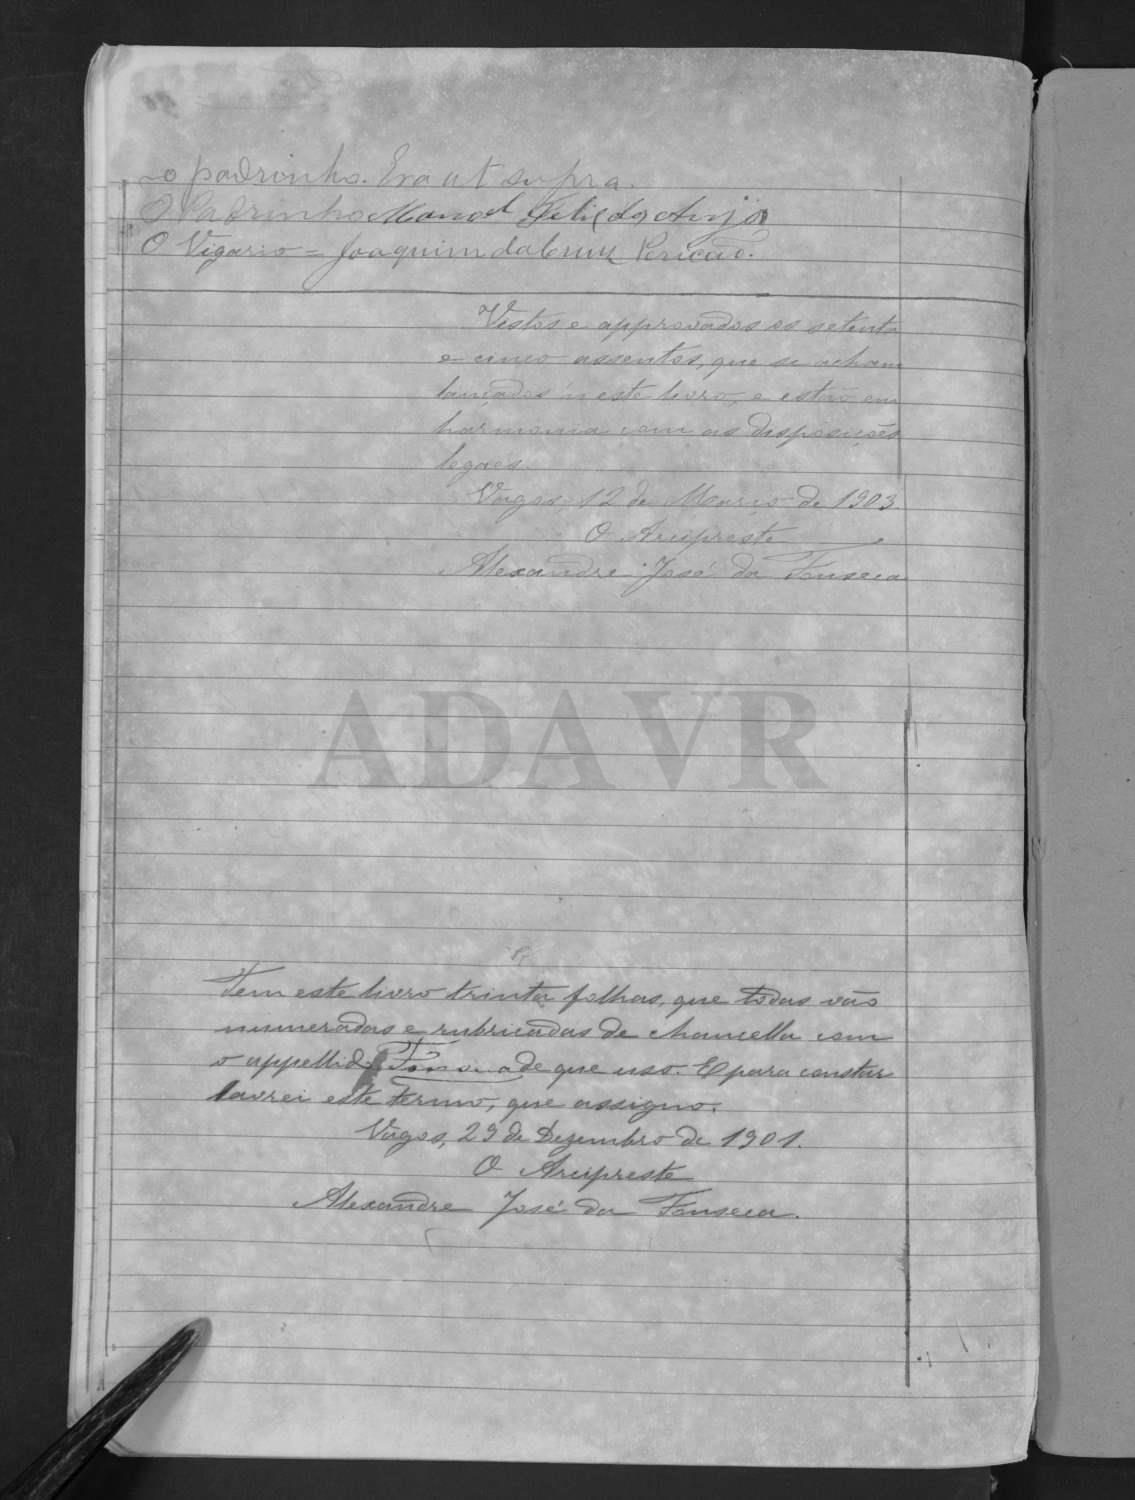 o padrinho. Era ut supra.
O Padrinho Manoel Felix dos Anjos
O Vigario = Joaquim da Cruz Pericão.
Vistos e approvados os setenta
e cinco assentos, que se acham
lançados n'este livro, e estão em
harmonia com as disposições
legaes.
Vagos, 12 de Março de 1903.
O Arcipreste
Alexandre José da Fonseca
ADAVR
Tem este livro trinta folhas, que todas vão
numeradas e rubricadas de chancella com
o appellido Fonseca de que uso. E para constar
lavrei este termo, que assigno.
Vagos, 29 de Dezembro de 1901.
O Arcipreste
Alexandre José da Fonseca.